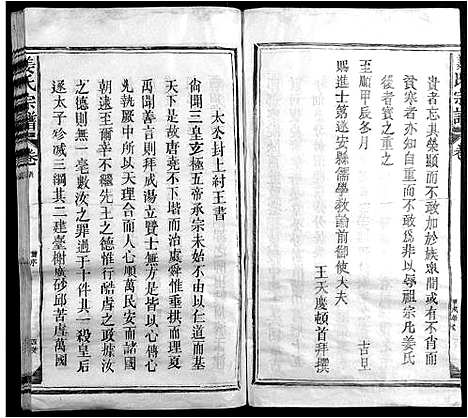 姜氏宗譜
貴者忘其榮顯而不敢加於族眾間或有
貧寒者亦安其本分而不敢肯以辱祖宗凡姜氏
後者寶之重之
至順甲辰冬月 吉旦
賜進士第遂安縣儒學教諭前御使大夫
王天慶頓首拜撰
太公封上紂王書
尚聞三皇立極五帝承宗未始不由以仁道而基
天下是故唐堯不下堦而治虞舜惟垂拱而理夏
禹聞善言則拜成湯立賢士無方是皆以心傳心
先執厥中所以天理合而人心順萬民安而諸國
寧及至大王嗣續先王不惟怙行酷虐之政據汝
之德則無一毫數汝之罪過于十件其一殺皇后
逐太子珍滅三綱其二建臺榭廣砂邱苦虐萬國
姜氏宗譜